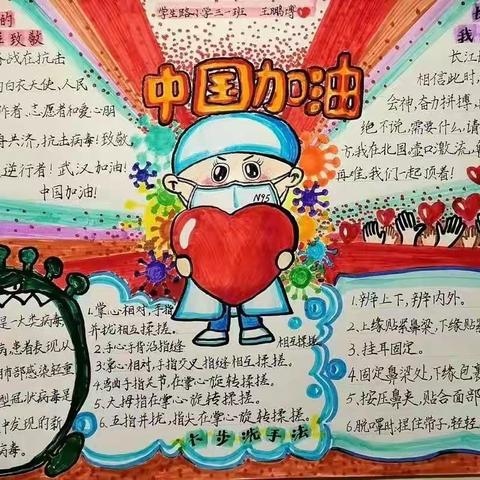 学生路小学三一班 王鹏博
的
致敬
战在抗击
的白衣天使,人民
作者、志愿者和爱心朋
舟共济,抗击病毒!致敬,
逆行者!武汉加油!
中国加油!
中国加油
我
长江
相信此时,
会神,奋力拼搏,
绝不说,需要什么,请
方,我在北国壶口激流,
再难,我们一起顶着!
N95
是一大类病毒
病,患者表现从
肺部感染轻重
型冠状病毒是
中发现的新
病毒。
1.掌心相对,手指
并拢相互揉搓。
2.手心手背沿指缝相互揉搓
3.掌心相对,手指交叉指缝相互揉搓。
4.弯曲手指关节,在掌心旋转揉搓。
5.大拇指在掌心旋转揉搓。
6.五指并拢,指尖在掌心旋转揉搓。
六步洗手法
1.辨上下,辨内外。
2.上缘贴紧鼻梁,下缘贴紧
3.挂耳固定。
4.固定鼻梁处,下缘包裹
5.按压鼻夹,贴合面部
6.脱口罩时,捏住带子,轻轻